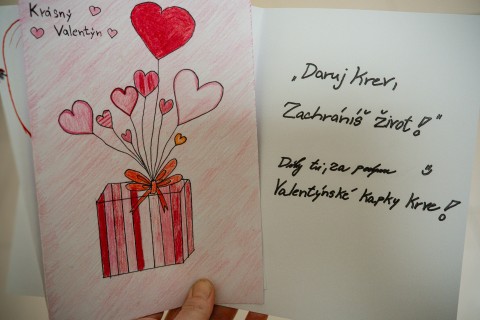 Krásný
Valentýn
„Daruj krev,
Zachráníš život!“
za
Valentýnské kapky krve!